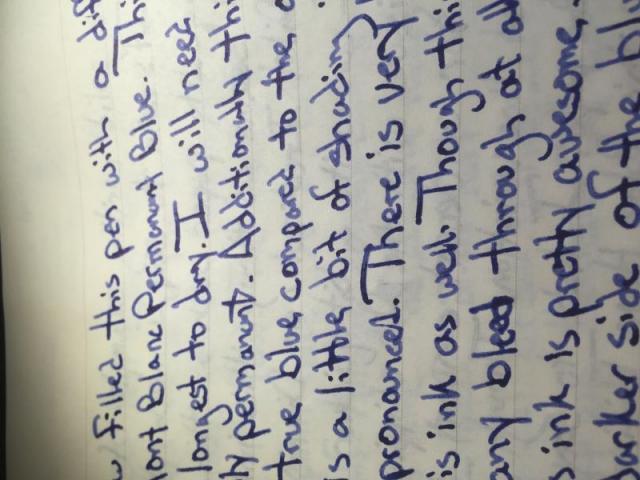 filled this pen with a
Blanc Permanent Blue.
longest to dry. I will need
permanent. Additionally this
true blue compared to the
is a little bit of shading
pronounced. There is very
is ink as well. Though this
any bleed through at
ink is pretty awesome.
darker side of the